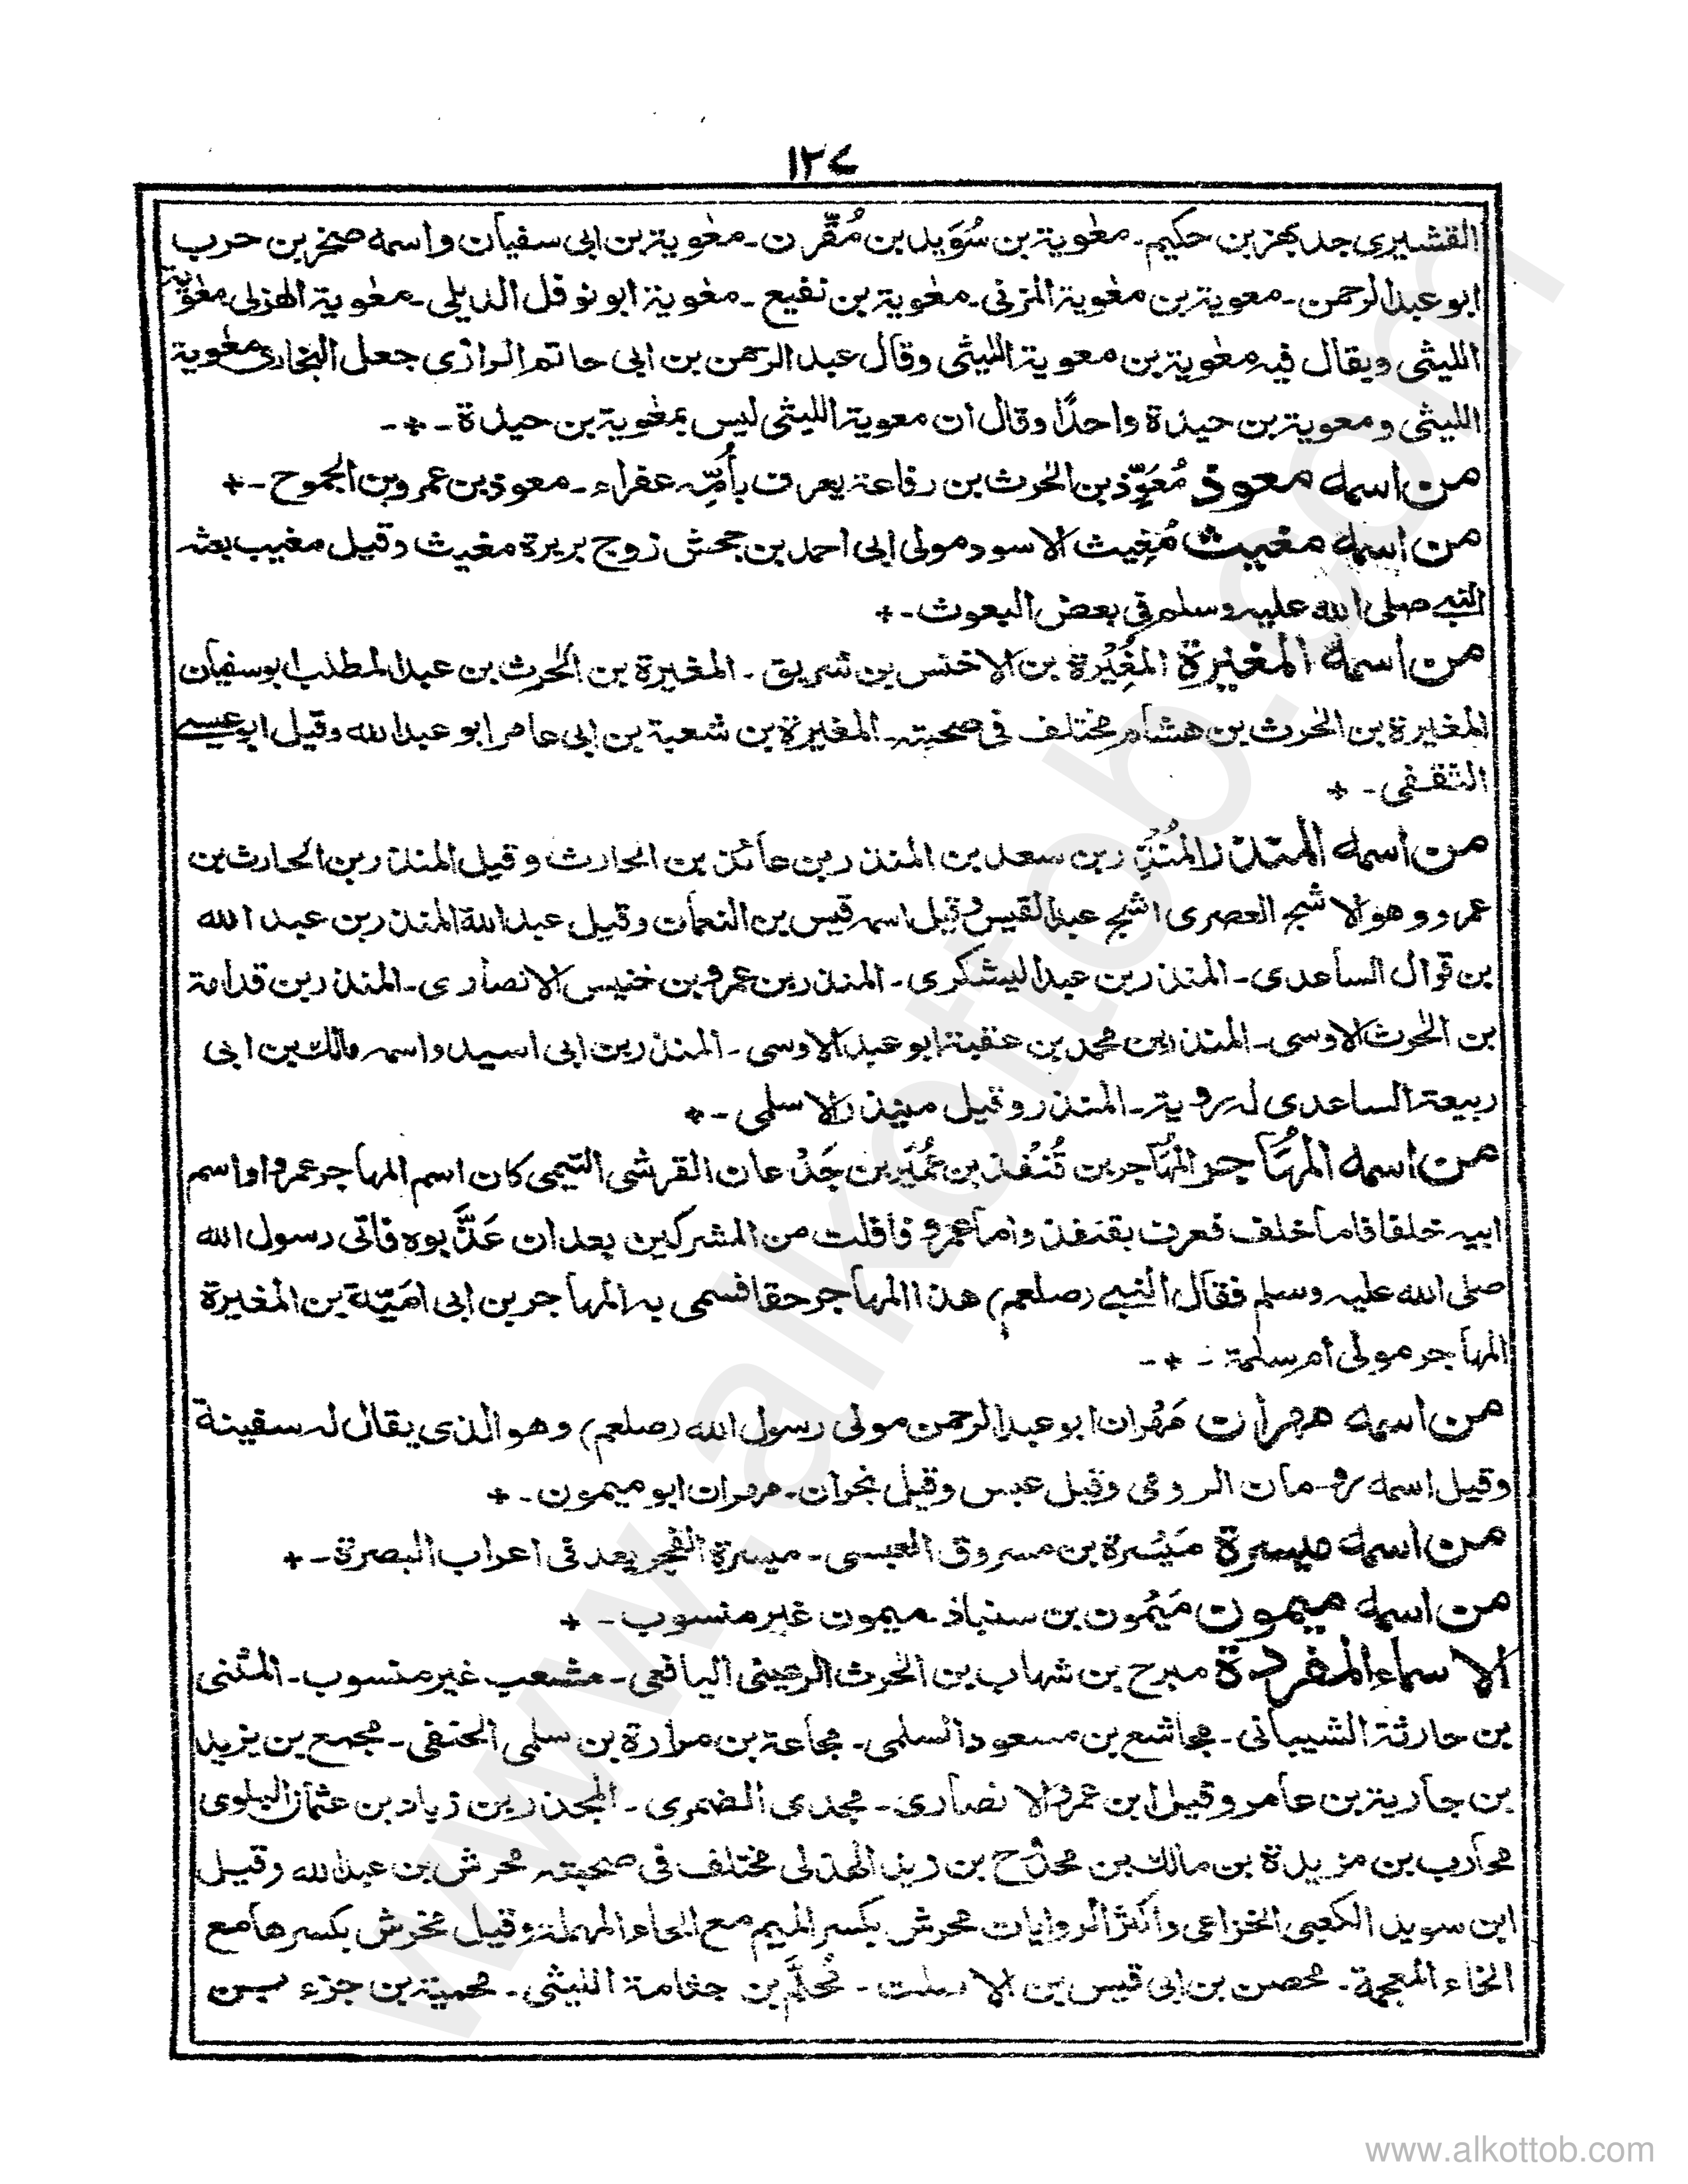 ١٢٧
القشيري جد بهز بن حكيم۔ معٰوية بن سُوَيد بن مُقَرِّن۔ معٰوية بن ابى سفيان واسمه صخر بن حرب
ابو عبد الرحمن۔ معوية بن معٰوية المزنى۔ معٰوية بن نفيع۔ معٰوية ابو نوفل الديلى۔ معٰوية الهزلى معٰوية
الليثى ويقال فيه معٰوية بن معوية الليثى وقال عبد الرحمن بن ابى حاتم الرازى جعل البخارى معٰوية
الليثى ومعوية بن حيدة واحدًا وقال ان معوية الليثى ليس بمعٰوية بن حيدة۔+۔
من اسمه معوذ مُعَوِّذ بن الحٰرث بن رفاعة يعرف بأُمِّه عفراء۔ معوذ بن عمرو بن الجموح۔+
من اسمه مغيث مُغِيث الاسود مولى ابى احمد بن جحش زوج بريرة مغيث وقيل مغيب بعثه
النبى صلى الله عليه وسلم فى بعض البعوث۔+
من اسمه المغيرة المُغِيْرة بن الاخنس بن شريق۔ المغيرة بن الحٰرث بن عبد المطلب ابو سفيان
المغيرة بن الحٰرث بن هشام مختلف فى صحبته۔ المغيرة بن شعبة بن ابى عامر ابو عبد الله وقيل ابو عيسى
الثقفى۔+
من اسمه المنذر المُنْذِر بن سعد بن المنذر بن عائذ بن الحارث وقيل المنذر بن الحارث بن
عمرو وهو الاشج العصرى اشج عبد القيس وقيل اسمه قيس بن النعمان وقيل عبد الله المنذر بن عبد الله
بن قوال الساعدى۔ المنذر بن عبد اليشكرى۔ المنذر بن عمرو بن خنيس الانصارى۔ المنذر بن قدامة
بن الحٰرث الاوسى۔ المنذر بن محمد بن عقبة ابو عبد الاوسى۔ المنذر بن ابى اسيد واسمه مالك بن ابى
ربيعة الساعدى له روية۔ المنذر وقيل منيذر الاسلمى۔+
من اسمه المهاجر المُهَاجر بن قُنْفُذ بن عُمَير بن جَدْعان القرشى التيمى كان اسم المهاجر عمرو واسم
ابيه خلفا فاما خلف فعرف بقنفذ واما عمرو فافلت من المشركين بعد ان عَذَّبوه فاتى رسول الله
صلى الله عليه وسلم فقال النبى (صلعم) هذا المهاجر حقا فسمى به المهاجر بن ابى امَيّة بن المغيرة
المهاجر مولى ام سلمة۔+۔
من اسمه مهران مَهْران ابو عبد الرحمن مولى رسول الله (صلعم) وهو الذى يقال له سفينة
وقيل اسمه رومان الرومى وقيل عبس وقيل نجران۔ مهران ابو ميمون۔+
من اسمه ميسرة مَيْسَرة بن مسروق العبسى۔ ميسرة الفجر يعد فى اعراب البصرة۔+
من اسمه ميمون مَيْمُون بن سنباذ۔ ميمون غير منسوب۔+
الاسماء المفردة مبرح بن شهاب بن الحٰرث الرعينى اليافعى۔ مشعب غير منسوب۔ المثنى
بن حارثة الشيبانى۔ مجاشع بن مسعود السلمى۔ مجاعة بن مرارة بن سلمى الحنفى۔ مجمع بن يزيد
بن جارية بن عامر وقيل ابن عمرو الانصارى۔ مجدى الضمرى۔ المجذر بن زياد بن عثمان البلوى
محارب بن مزيدة بن مالك بن بن زيد الهذلى مختلف فى صحبته محرش بن عبد الله وقيل
ابن سويد الكعبى الخزاعى واكثر الروايات محرش بكسر الميم مع الحاء المهملة وقيل مخرش بكسرها مع
الخاء المعجمة۔ محصن بن ابى قيس بن الاسلت۔ مُحَلَّم بن جثامة الليثى۔ محمية بن جزء بن
www.alkottob.com
www.alkottob.com